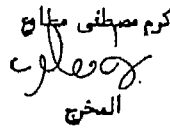 كرم مصطفى مطاوع
المخرج